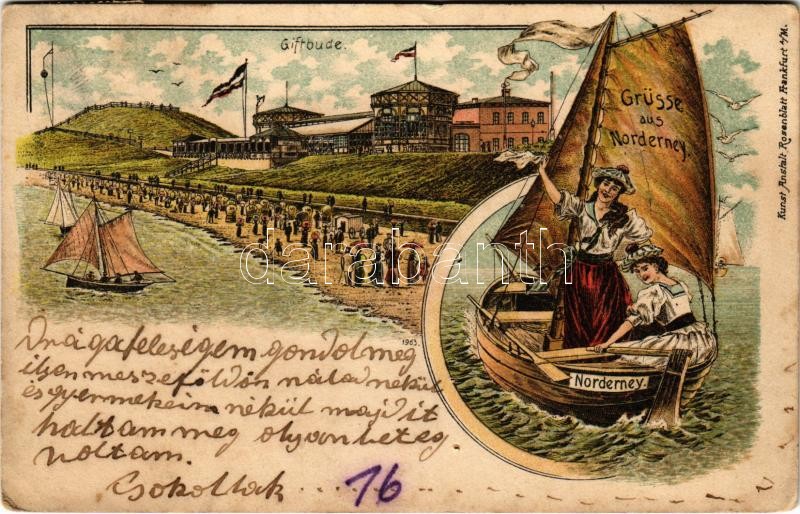 Giftbude.
Grüsse
aus
Norderney.
Kunst Anstalt Rosenblatt Frankfurt a/M.
darabanth
1963.
Norderney.
Drága feleségem gondol meg
ilyen messze földön nálad nélkül
és gyermekeim nélkül majd it
haltam meg olyan beteg
voltam.
Csokollak . . . .
16